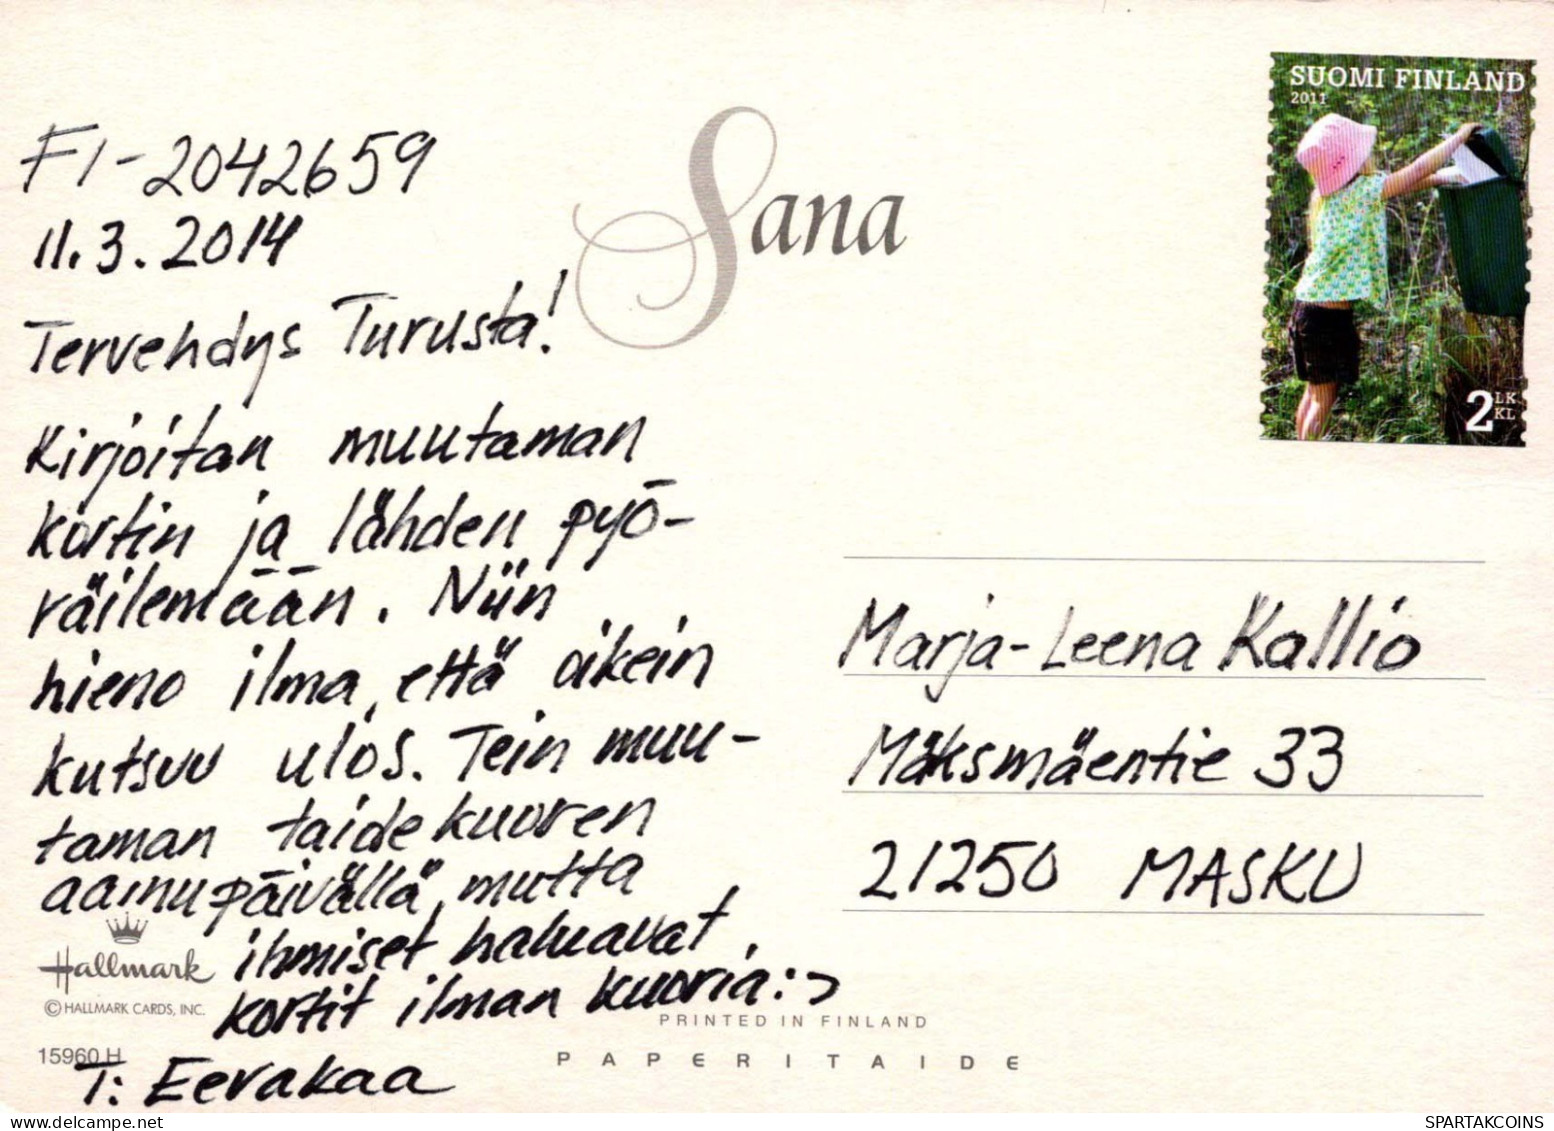 SUOMI FINLAND
2011
2 LK KL
Sana
FI-2042659
11.3.2014
Tervehdys Turusta!
Kirjoitan muutaman
kortin ja lähden pyö-
räilemään. Niin
hieno ilma, että oikein
kutsuu ulos. Tein muu-
taman taidekuoren
aamupäivällä, mutta
ihmiset haluavat
kortit ilman kuoria :>
T: Eevakaa
Marja-Leena Kallio
Mäksmäentie 33
21250 MASKU
Hallmark
© HALLMARK CARDS, INC.
15960 H
PRINTED IN FINLAND
PAPERITAIDE
SPARTAKCOINS
www.delcampe.net